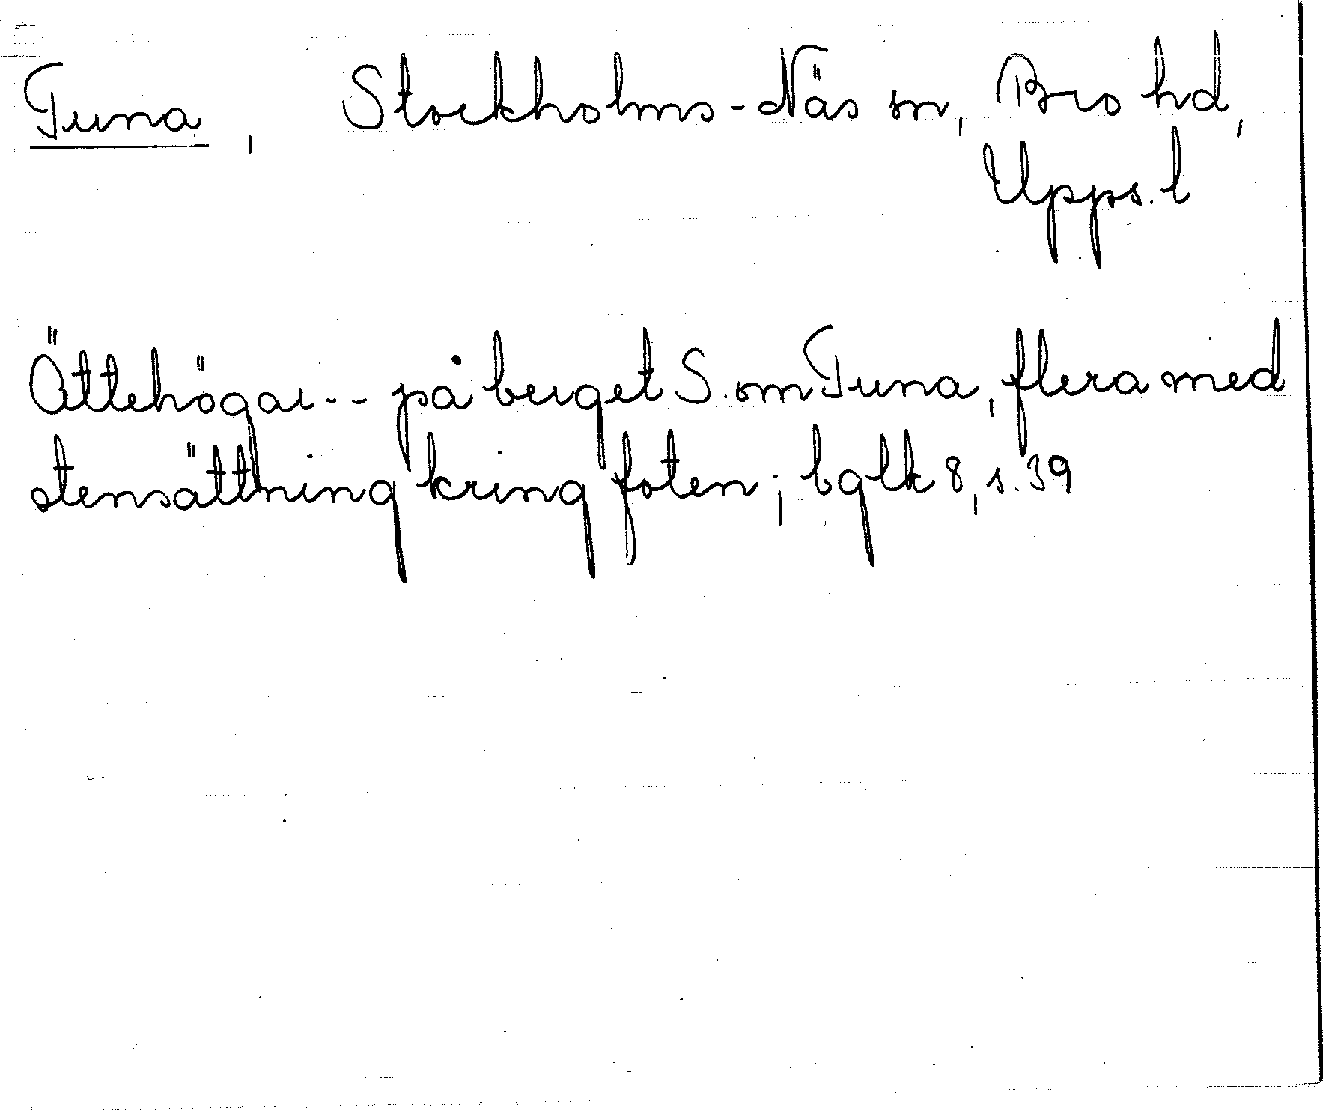 Tuna, Stockholms-Näs sn, Bro hd,
Upps. l
Ättehögar -- på berget S. om Tuna, flera med
stensättning kring foten; bglk 8, s. 39